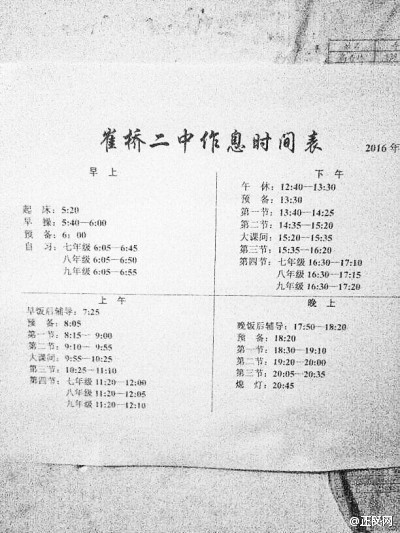 崔桥二中作息时间表
2016年
早上
起 床：5:20
早 操：5:40—6:00
预 备：6：00
自 习：七年级 6:05—6:45
八年级 6:05—6:50
九年级 6:05—6:55
下午
午 休：12:40—13:30
预 备：13:30
第一节：13:40—14:25
第二节：14:35—15:20
大课间：15:20—15:35
第三节：15:35—16:20
第四节：七年级 16:30—17:10
八年级 16:30—17:15
九年级 16:30—17:20
上午
早饭后辅导：7:25
预 备：8:05
第一节：8:15— 9:00
第二节：9:10— 9:55
大课间：9:55—10:25
第三节：10:25—11:10
第四节：七年级 11:20—12:00
八年级 11:20—12:05
九年级 11:20—12:10
晚上
晚饭后辅导：17:50—18:20
预 备：18:20
第一节：18:30—19:10
第二节：19:20—20:00
第三节：20:05—20:35
熄 灯：20:45
@正义网